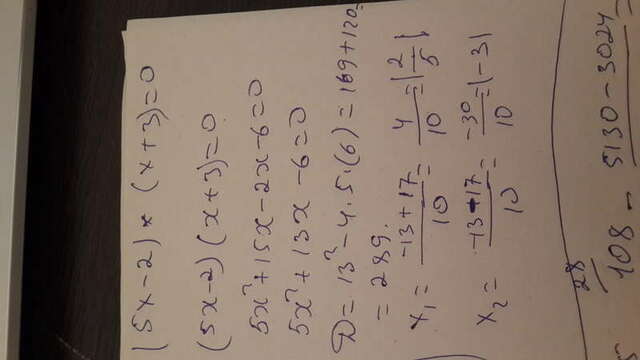 (5x-2)*(x+3)=0
(5x-2)(x+3)=0
5x²+15x-2x-6=0
5x²+13x-6=0
D=13²-4·5·(6)=169+120=
=289.
x₁=\frac{-13+17}{10}=\frac{4}{10}=|\frac{2}{5}|
x₂=\frac{-13-17}{10}=\frac{-30}{10}=|-3|
28
108 - 5130-3024